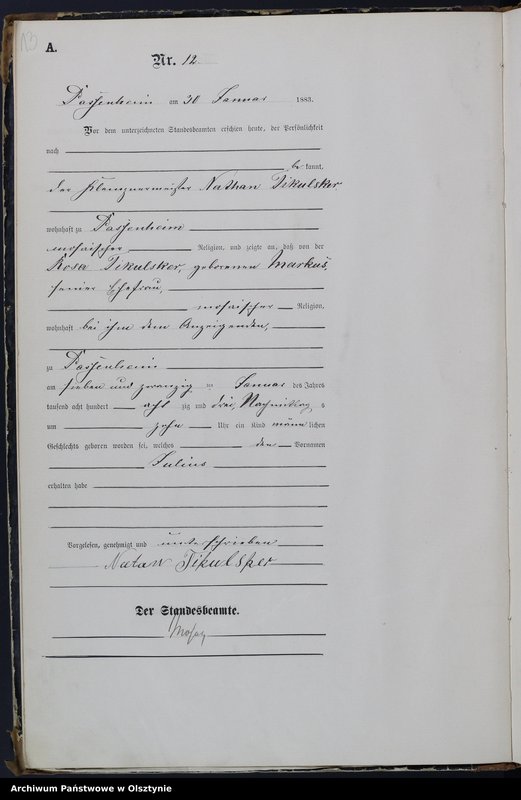 A.
Nr. 12
Passenheim am 30 Januar 1883.
Vor dem unterzeichneten Standesbeamten erschien heute, der Persönlichkeit
nach
be kannt,
der Klempnermeister Nathan Tikulsker
wohnhaft zu Passenheim
mosaischer Religion, und zeigte an, daß von der
Rosa Tikulsker, geborenen Markus,
seiner Ehefrau,
mosaischer Religion,
wohnhaft bei ihm dem Anzeigenden,
zu Passenheim
am sieben und zwanzig ten Januar des Jahres
tausend acht hundert acht zig und drei, Nachmittag s
um zehn Uhr ein Kind männ lichen
Geschlechts geboren worden sei, welches den Vornamen
Julius
erhalten habe
Vorgelesen, genehmigt und unterschrieben
Natan Tikulsker
Der Standesbeamte.
Archiwum Państwowe w Olsztynie